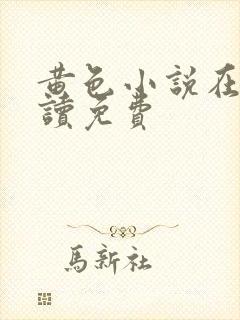 黃色小說在
讀免費
馬新社